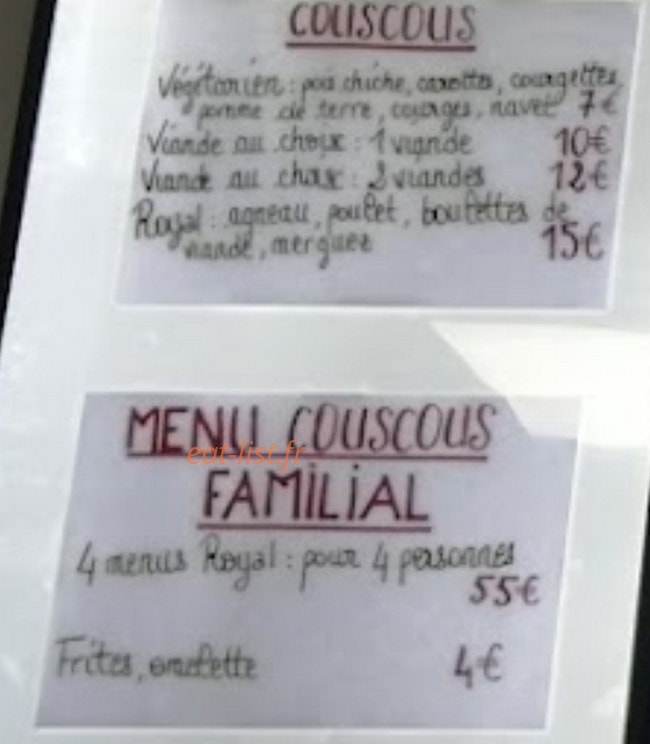 COUSCOUS
Végétarien : pois chiche, carottes, courgettes,
pomme de terre, courges, navet 7€
Viande au choix : 1 viande 10€
Viande au choix : 2 viandes 12€
Royal : agneau, poulet, boulettes de
viande, merguez 15€
MENU COUSCOUS
eat-list.fr
FAMiLiAL
4 menus Royal : pour 4 personnes
55€
Frites, omelette 4€